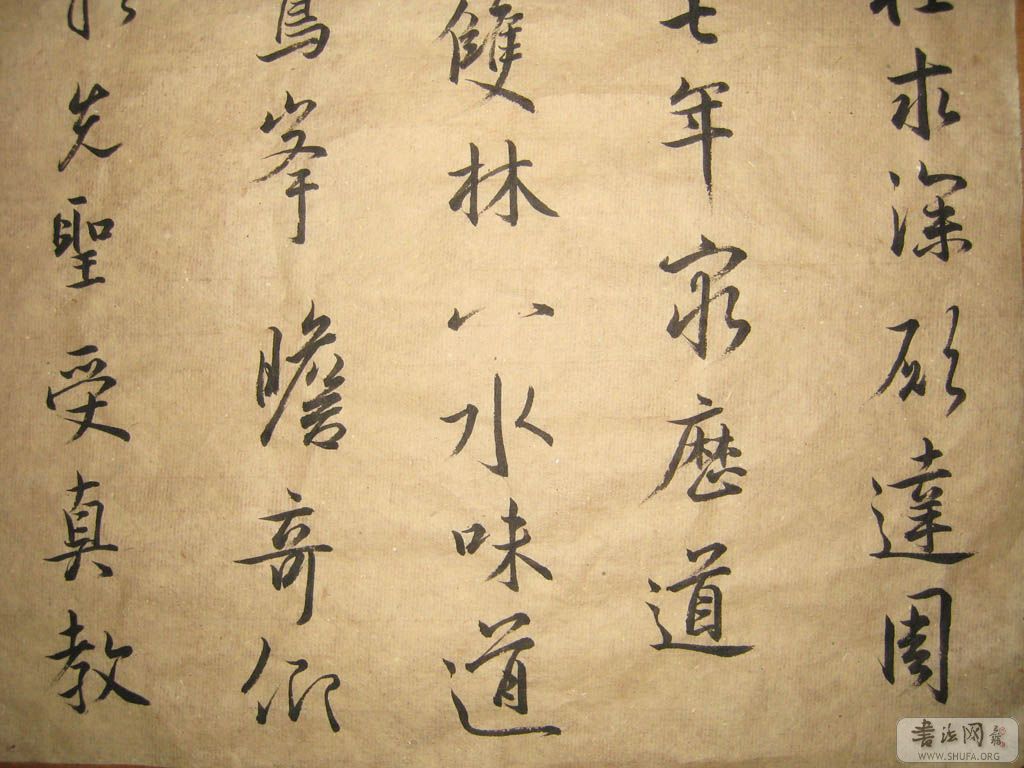 求深願達周
七年窮歷道
雙林八水味道
峯瞻竒仰
先聖受真教
書法网
WWW.SHUFA.ORG